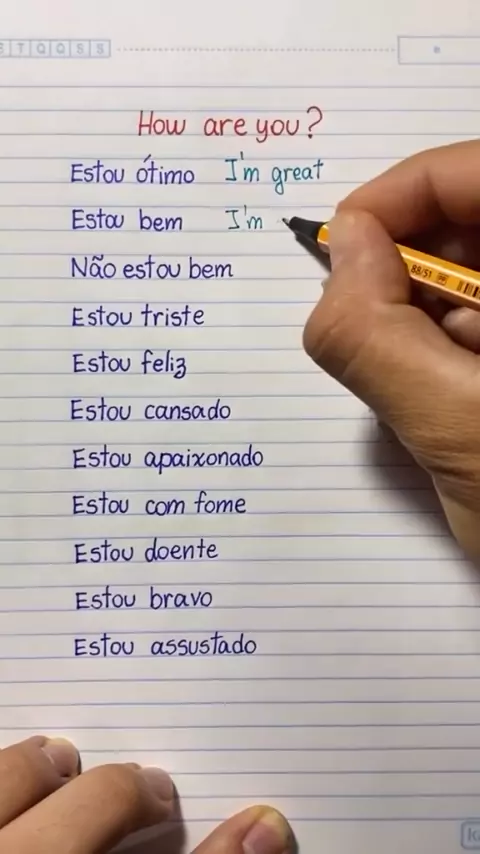 S T Q Q S S
How are you?
Estou ótimo I'm great
Estou bem I'm
Não estou bem
Estou triste
Estou feliz
Estou cansado
Estou apaixonado
Estou com fome
Estou doente
Estou bravo
Estou assustado
88/51